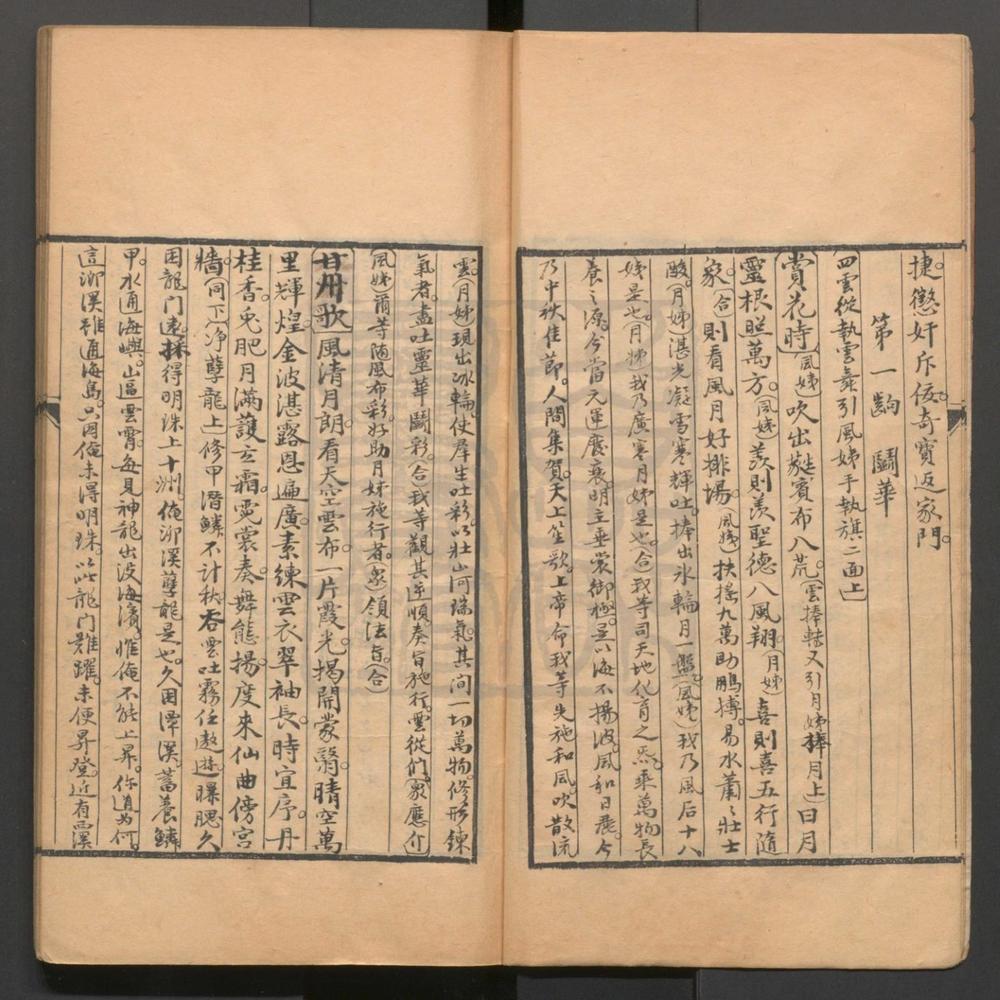 捷。懲奸斥佞。奇寶返家門。
第一齣　鬪華
四雲從執雲彩引風姨手執旗二面上
賞花時（風姨）吹出蕤賓布八荒。（雲捧轉又引月姊捧月上）日月
靈根照萬方。（風姨）羨則羨聖德八風翔（月姊）喜則喜五行隨
象。（合）則看風月好排場。（風姨）扶搖九萬助鵬摶。易水蕭〻壯士
酸。（月姊）湛光凝雪寒輝吐。捧出氷輪月一盤（風姨）我乃風后十八
姨是也。（月姊）我乃廣寒月姊是也。合我等司天地化育之炁。乘萬物長
養之源。今當元運慶衰。明主垂裳御極。是以海不揚波。風和日麗。今
乃中秋佳節。人間集賀。天上笙歌。上帝命我等先施和風。吹散流
雲。（月姊）現出冰輪。使羣生吐彩。以壯山河瑞氣。其间一切萬物。修形鍊
氣者。盡吐靈華鬪彩。合我等觀其逆順。奏旨施行。雲從們。（眾應介）
（風姨）爾等随風布彩。好助月姊施行者。（眾）領法旨。（合）
甘州歌 風清月朗。看天空雲布一片霞光。揭開蒙翳晴空萬
里輝煌。金波湛露恩遍廣。素練雲衣翠袖長。時宜序。丹
桂香。兎肥月滿護玄霜。霓裳奏。舞態揚。度來仙曲傍宮
牆。（同下）（净孽龍上）修甲潛鱗不計秋。吞雲吐霧任遨遊。曝腮久
困龍门遠。採得明珠上十洲。俺泖溪孽龍是也。久困潭溪蓄養鱗
甲。水通海嶼。山逼雲霄。每見神龍出没海濱。惟俺不能上昇。你道为何。
這泖溪雖通海島。只因俺未得明珠。以此龍门難躍。未便昇登。近有溪